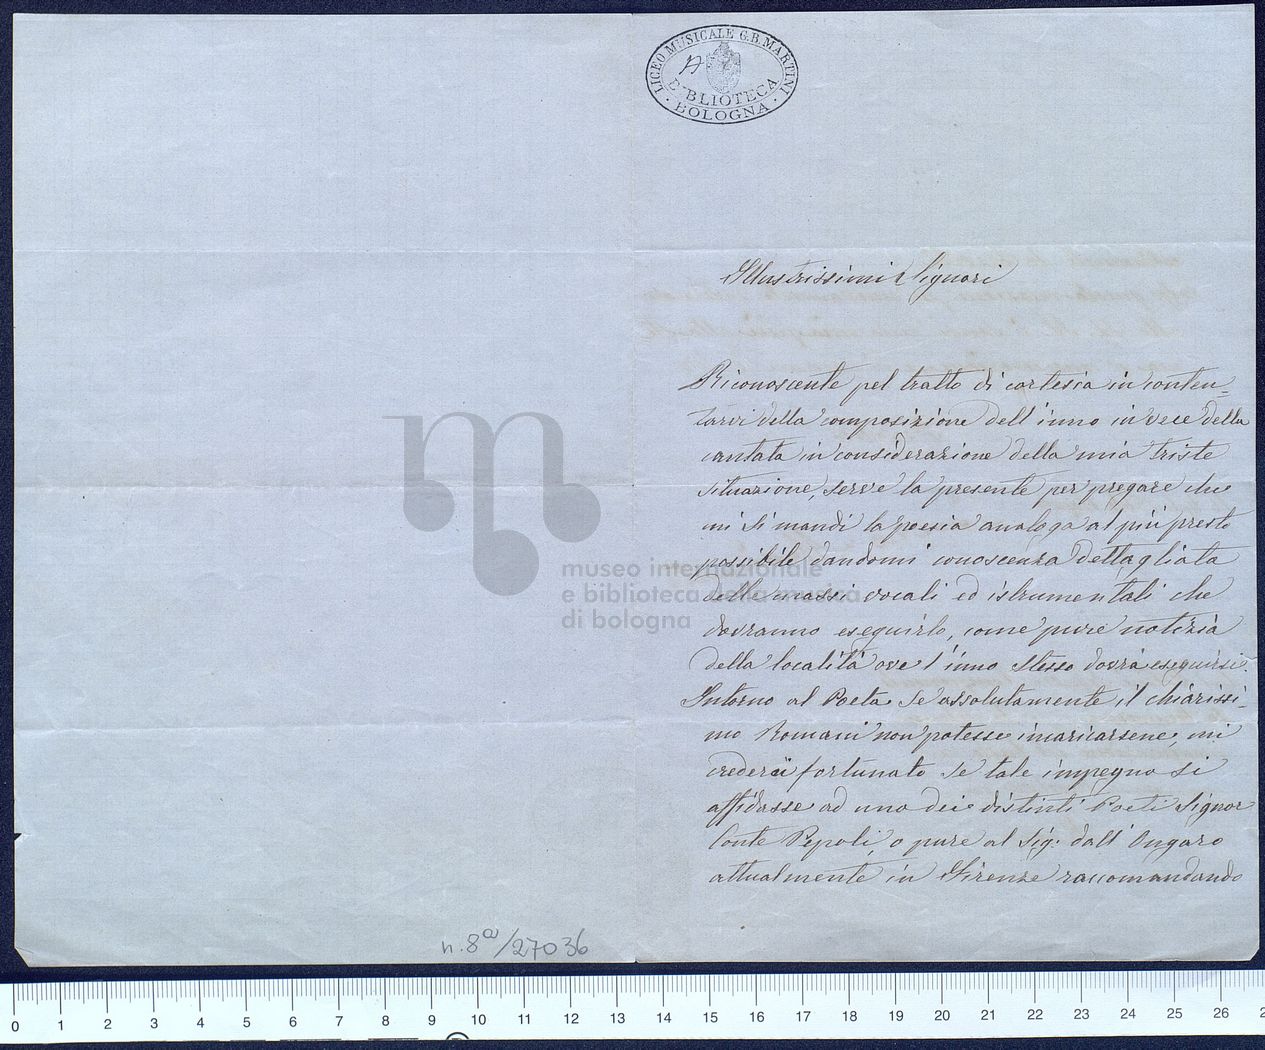 LICEO MUSICALE G.B. MARTINI
BIBLIOTECA
BOLOGNA
Illustrissimi Signori
Riconoscente pel tratto di cortesia in conten-
tarvi della composizione dell'inno in vece della
cantata in considerazione della mia triste
situazione, serve la presente per pregare che
mi si mandi la poesia analoga al più presto
possibile dandomi conoscenza dettagliata
delle massi vocali ed istrumentali che
dovranno eseguirlo, come pure notizia
della località ove l'inno stesso dovrà eseguirsi.
Intorno al Poeta se assolutamente il chiarissi-
mo Romani non potesse incaricarsene, mi
crederei fortunato se tale impegno si
affidasse ad uno dei distinti Poeti Signor
Conte Pepoli, o pure al Sig. dall'Ongaro
attualmente in Firenze raccomandando
museo internazionale
e biblioteca della musica
di bologna
n. 8a/27036
0 1 2 3 4 5 6 7 8 9 10 11 12 13 14 15 16 17 18 19 20 21 22 23 24 25 26 2